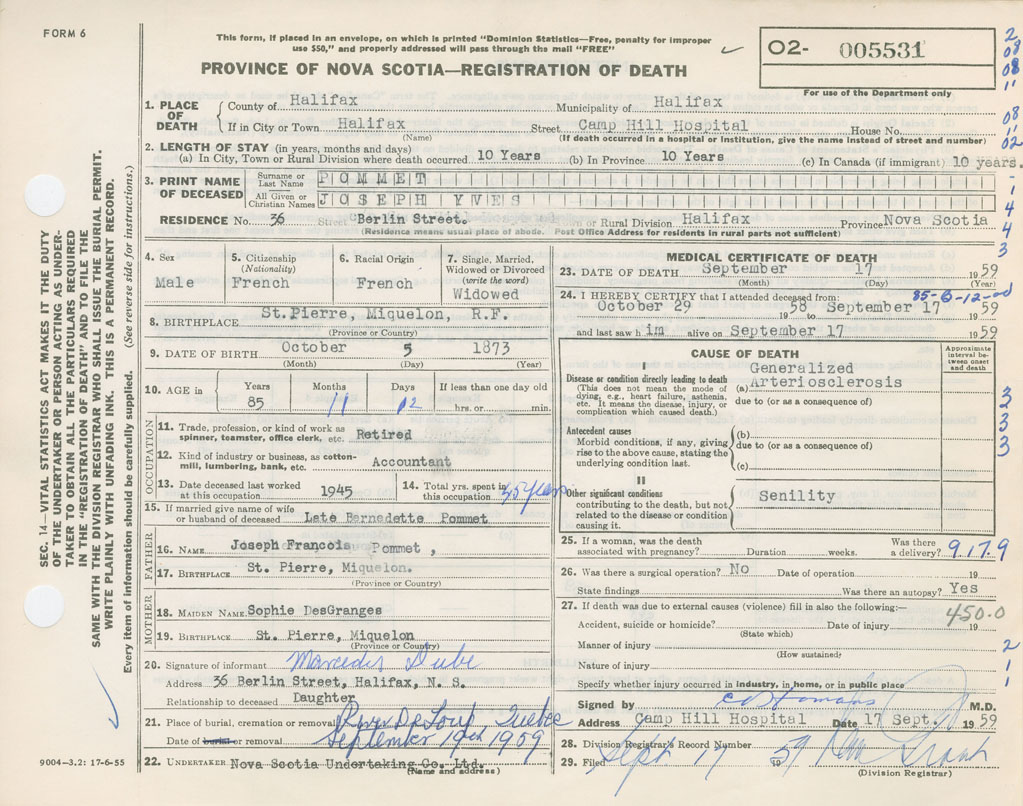 FORM 6
This form, if placed in an envelope, on which is printed "Dominion Statistics—Free, penalty for improper
use $50," and properly addressed will pass through the mail "FREE"
PROVINCE OF NOVA SCOTIA—REGISTRATION OF DEATH
02- 005531
For use of the Department only
1. PLACE OF DEATH
County of Halifax Municipality of Halifax
If in City or Town Halifax Street Camp Hill Hospital House No.
(Name) (If death occurred in a hospital or institution, give the name instead of street and number)
2. LENGTH OF STAY (in years, months and days)
(a) In City, Town or Rural Division where death occurred 10 Years (b) In Province 10 Years (c) In Canada (if immigrant) 10 years.
3. PRINT NAME OF DECEASED
Surname or Last Name POMMET
All Given or Christian Names JOSEPH YVES
RESIDENCE No. 36 Street Berlin Street. or Rural Division Halifax Province Nova Scotia
(Residence means usual place of abode. Post Office Address for residents in rural parts not sufficient)
4. Sex Male
5. Citizenship (Nationality) French
6. Racial Origin French
7. Single, Married, Widowed or Divorced (write the word) Widowed
8. BIRTHPLACE St.Pierre, Miquelon, R.F.
(Province or Country)
9. DATE OF BIRTH October 5 1873
(Month) (Day) (Year)
10. AGE in Years 85 Months 11 Days 12 If less than one day old hrs. or min.
OCCUPATION
11. Trade, profession, or kind of work as spinner, teamster, office clerk, etc. Retired
12. Kind of industry or business, as cotton-mill, lumbering, bank, etc. Accountant
13. Date deceased last worked at this occupation 1945
14. Total yrs. spent in this occupation 55 years
15. If married give name of wife or husband of deceased Late Bernedette Pommet
FATHER
16. NAME Joseph Francois Pommet ,
17. BIRTHPLACE St. Pierre, Miquelon.
(Province or Country)
MOTHER
18. MAIDEN NAME Sophie DesGranges
19. BIRTHPLACE St. Pierre, Miquelon
(Province or Country)
20. Signature of informant Marcedes Dube
Address 36 Berlin Street, Halifax, N. S.
Relationship to deceased Daughter
21. Place of burial, cremation or removal River De Loup, Quebec
Date of burial or removal September 19th 1959
22. UNDERTAKER Nova Scotia Undertaking Co. Ltd.
(Name and address)
MEDICAL CERTIFICATE OF DEATH
23. DATE OF DEATH September 17 1959
(Month) (Day) (Year)
24. I HEREBY CERTIFY that I attended deceased from: 85-6-12-
October 29 1958 to September 17 1959
and last saw him alive on September 17 1959
CAUSE OF DEATH
Approximate interval between onset and death
Disease or condition directly leading to death
(This does not mean the mode of dying, e.g., heart failure, asthenia, etc. It means the disease, injury, or complication which caused death.)
(a) Generalized Arteriosclerosis
due to (or as a consequence of)
Antecedent causes
Morbid conditions, if any, giving rise to the above cause, stating the underlying condition last.
(b)
due to (or as a consequence of)
(c)
II
Other significant conditions contributing to the death, but not related to the disease or condition causing it.
Senility
25. If a woman, was the death associated with pregnancy? Duration weeks. Was there a delivery? 9.17.9
26. Was there a surgical operation? No Date of operation 19
State findings Was there an autopsy? Yes
27. If death was due to external causes (violence) fill in also the following:—
450.0
Accident, suicide or homicide? Date of injury 19
(State which)
Manner of injury
(How sustained)
Nature of injury
Specify whether injury occurred in industry, in home, or in public place
Signed by M.D.
Address Camp Hill Hospital Date 17 Sept. 1959
28. Division Registrar's Record Number
29. Filed Sept 17 1959
(Division Registrar)
SEC. 14—VITAL STATISTICS ACT MAKES IT THE DUTY
OF THE UNDERTAKER OR PERSON ACTING AS UNDER-
TAKER TO OBTAIN ALL THE PARTICULARS REQUIRED
IN THE "REGISTRATION OF DEATH" AND TO FILE THE
SAME WITH THE DIVISION REGISTRAR WHO SHALL ISSUE THE BURIAL PERMIT.
WRITE PLAINLY WITH UNFADING INK. THIS IS A PERMANENT RECORD.
Every item of information should be carefully supplied. (See reverse side for instructions.)
9004—3.2: 17-6-55
2
08
08
11
08
11
02
1
4
4
3
3
3
3
3
2
1
1